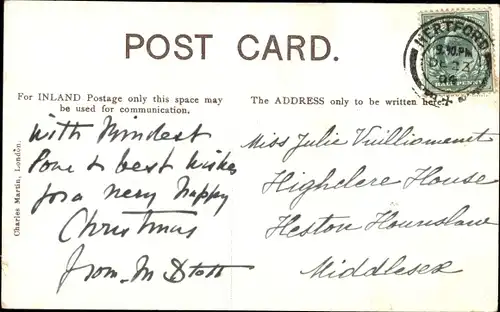 POST CARD.
HERTFORD
9.30 PM
DE 23
06
HALF PENNY
For INLAND Postage only this space may
be used for communication.
The ADDRESS only to be written here.
Charles Martin, London.
With kindest
love & best wishes
for a very happy
Christmas
from M Stott
Miss Julie Vuilliomenet
Highclere House
Heston Hounslow
Middlesex